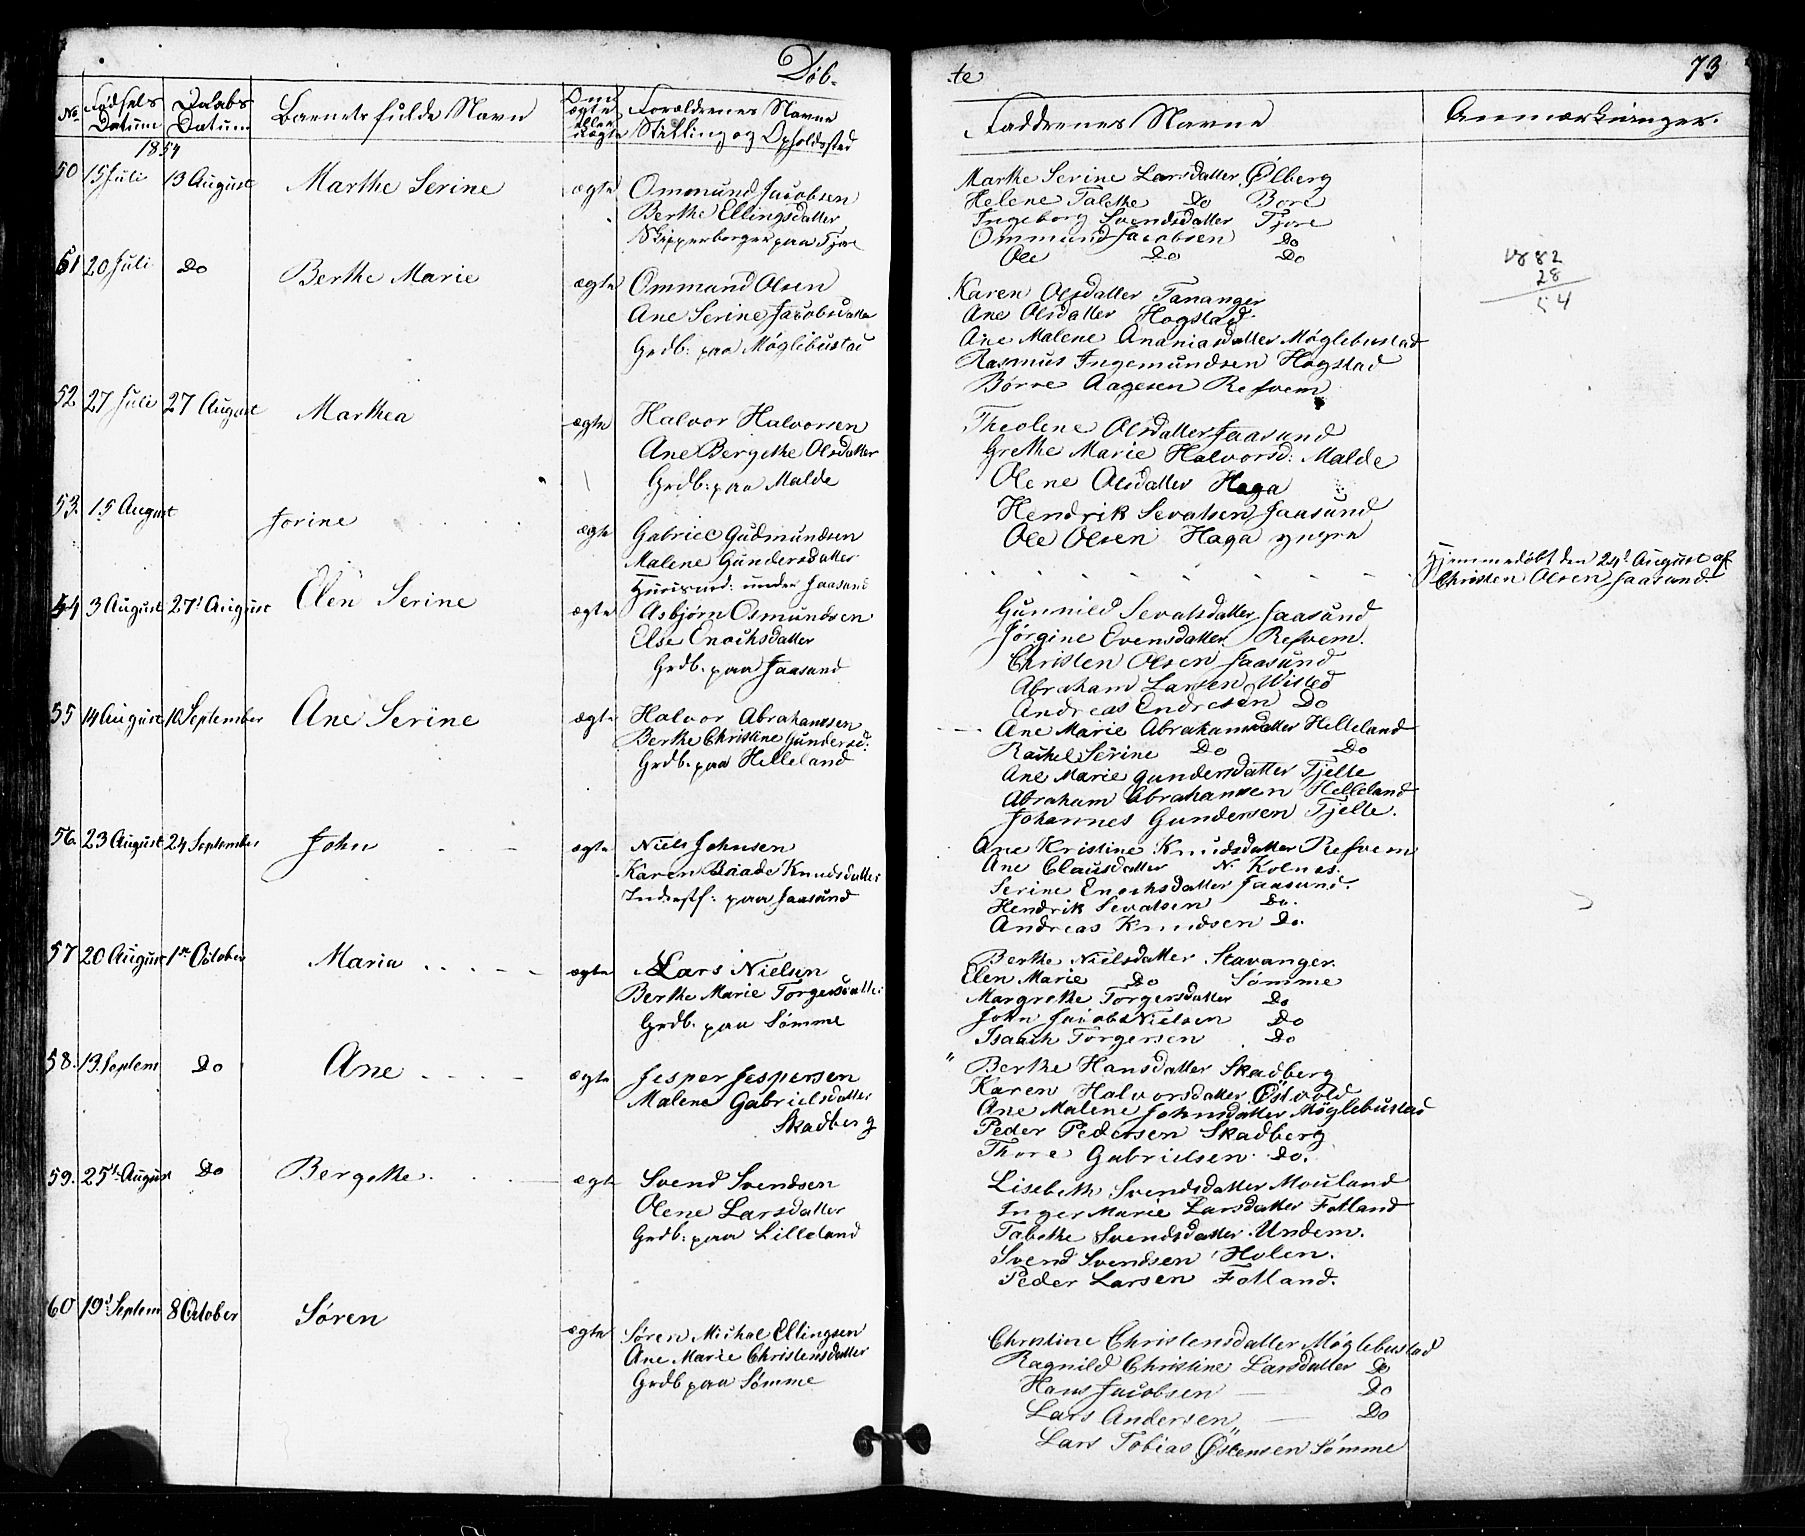 Døb-
te
73
No
Fødsels Datum
Daabs Datum
Barnets fulde Navn
Om ægte eller uægte
Forældrenes Navne Stilling og Opholdssted
Faddrenes Navne
Anmærkninger.
1854
50 15 Juli 13 August Marthe Serine ægte Ommund Jacobsen
Berthe Ellingsdatter
Skipperborger paa Tjore
Marthe Serine Larsdatter Ølberg
Helene Talethe Do Bore
Ingeborg Svendsdatter Tjore
Ommund Jacobsen Do
Ole Do Do
51 20 Juli Do Berthe Marie ægte Ommund Olsen
Ane Serine Jacobsdatter
Grdb: paa Møglebustad
Karen Olsdatter Tananger
Ane Olsdatter Hogstad
Ane Malene Ananiasdatter Møglebustad
Rasmus Ingemundsen Hogstad
Børre Aagesen Refvem
1882
28
54
52 27 Juli 27 August Marthea ægte Halvor Halvorsen
Ane Bergithe Olsdatter
Grdb: paa Malde
Theolene Olsdatter Jaasund
Grethe Marie Halvorsd: Malde
Olene Olsdatter Haga
Hendrik Sevatsen Jaasund
Ole Olsen Haga yngre
53. 15 August Jorine ægte Gabriel Gudmundsen
Malene Gundersdatter
Huusmd: under Jaasund
Hjemmedøbt den 24de August af
Christen Olsen Jaasund.
54 3 August 27 August Elen Serine ægte Asbjørn Osmundsen
Else Enochsdatter
Grdb. paa Jaasund
Gunnild Sevatsdatter Jaasund
Jørgine Evensdatter Refvem.
Christen Olsen Jaasund
Abraham Larsen Wisted
Andreas Endresen Do
55 14 August 10 September Ane Serine ægte Halvor Abrahamsen
Berthe Christine Gundersd:
Grdb. paa Helleland
Ane Marie Abrahamsdatter Helleland
Rachel Serine Do Do
Ane Marie Gundersdatter Tjelte
Abraham Abrahamsen Helleland
Johannes Gundersen Tjelte.
56. 23 August 24 September John ægte Niels Johnsen
Karen Baade Knudsdatter
Inderstf: paa Jaasund
Ane Kristine Knudsdatter Refvem
Ane Clausdatter N. Kolnes.
Serine Enochsdatter Jaasund.
Hendrik Sevatsen Do.
Andreas Knudsen Do.
57 20 August 1ste October Maria ægte Lars Nielsen
Berthe Marie Torgersdatter
Grdb. paa Sømme
Berthe Nielsdatter Stavanger.
Elen Marie Do Sømme
Margrethe Torgersdatter Do
John Jacob Nielsen Do
Isaach Torgersen Do
58. 13 Septem Do Ane ægte Jesper Jespersen
Malene Gabrielsdatter
Skadberg
Berthe Hansdatter Skadberg
Karen Halvorsdatter Østvold
Ane Malene Johnsdatter Møglebustad
Peder Pedersen Skadberg
Thore Gabrielsen Do.
59. 25 August Do Bergethe. ægte Svend Svendsen
Olene Larsdatter
Grdb: paa Lilleland
Lisebeth Svendsdatter Mouland
Inger Marie Larsdatter Fotland
Tabethe Svendsdatter Undem.
Svend Svendsen Holen.
Peder Larsen Fotland.
60 19 Septem 8 October Søren ægte Søren Michal Ellingsen
Ane Marie Christensdatter
Grdb paa Sømme
Christine Christensdatter Møglebustad
Ragnild Christine Larsdatter Do
Hans Jacobsen Do
Lars Andersen Do
Lars Tobias Østensen Sømme